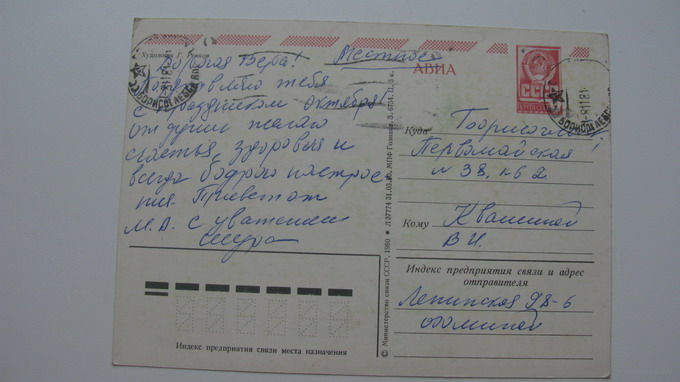 Художник Г.
Дорогая Вера!
Поздравляю тебя
с праздником октября!
от души желаю
счастья, здоровья и
всегда бодрого настрое
ния. Привет от
М. А. с уважением
Местное
АВИА
СССР
Куда
Первомайская
38, кв 2
Кому
В И.
Индекс предприятия связи и адрес
отправителя
Ленинская 98-6
Индекс предприятия связи места назначения
© Министерство связи СССР, 1980